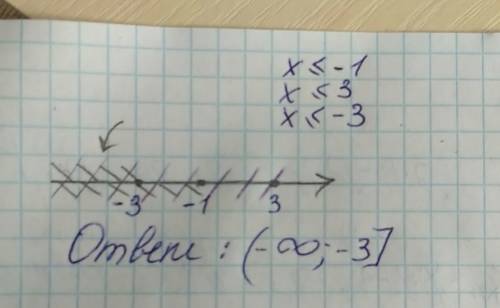 x ≤ -1
x ≤ 3
x ≤ -3
-3 -1 3
Ответ: (-∞; -3]